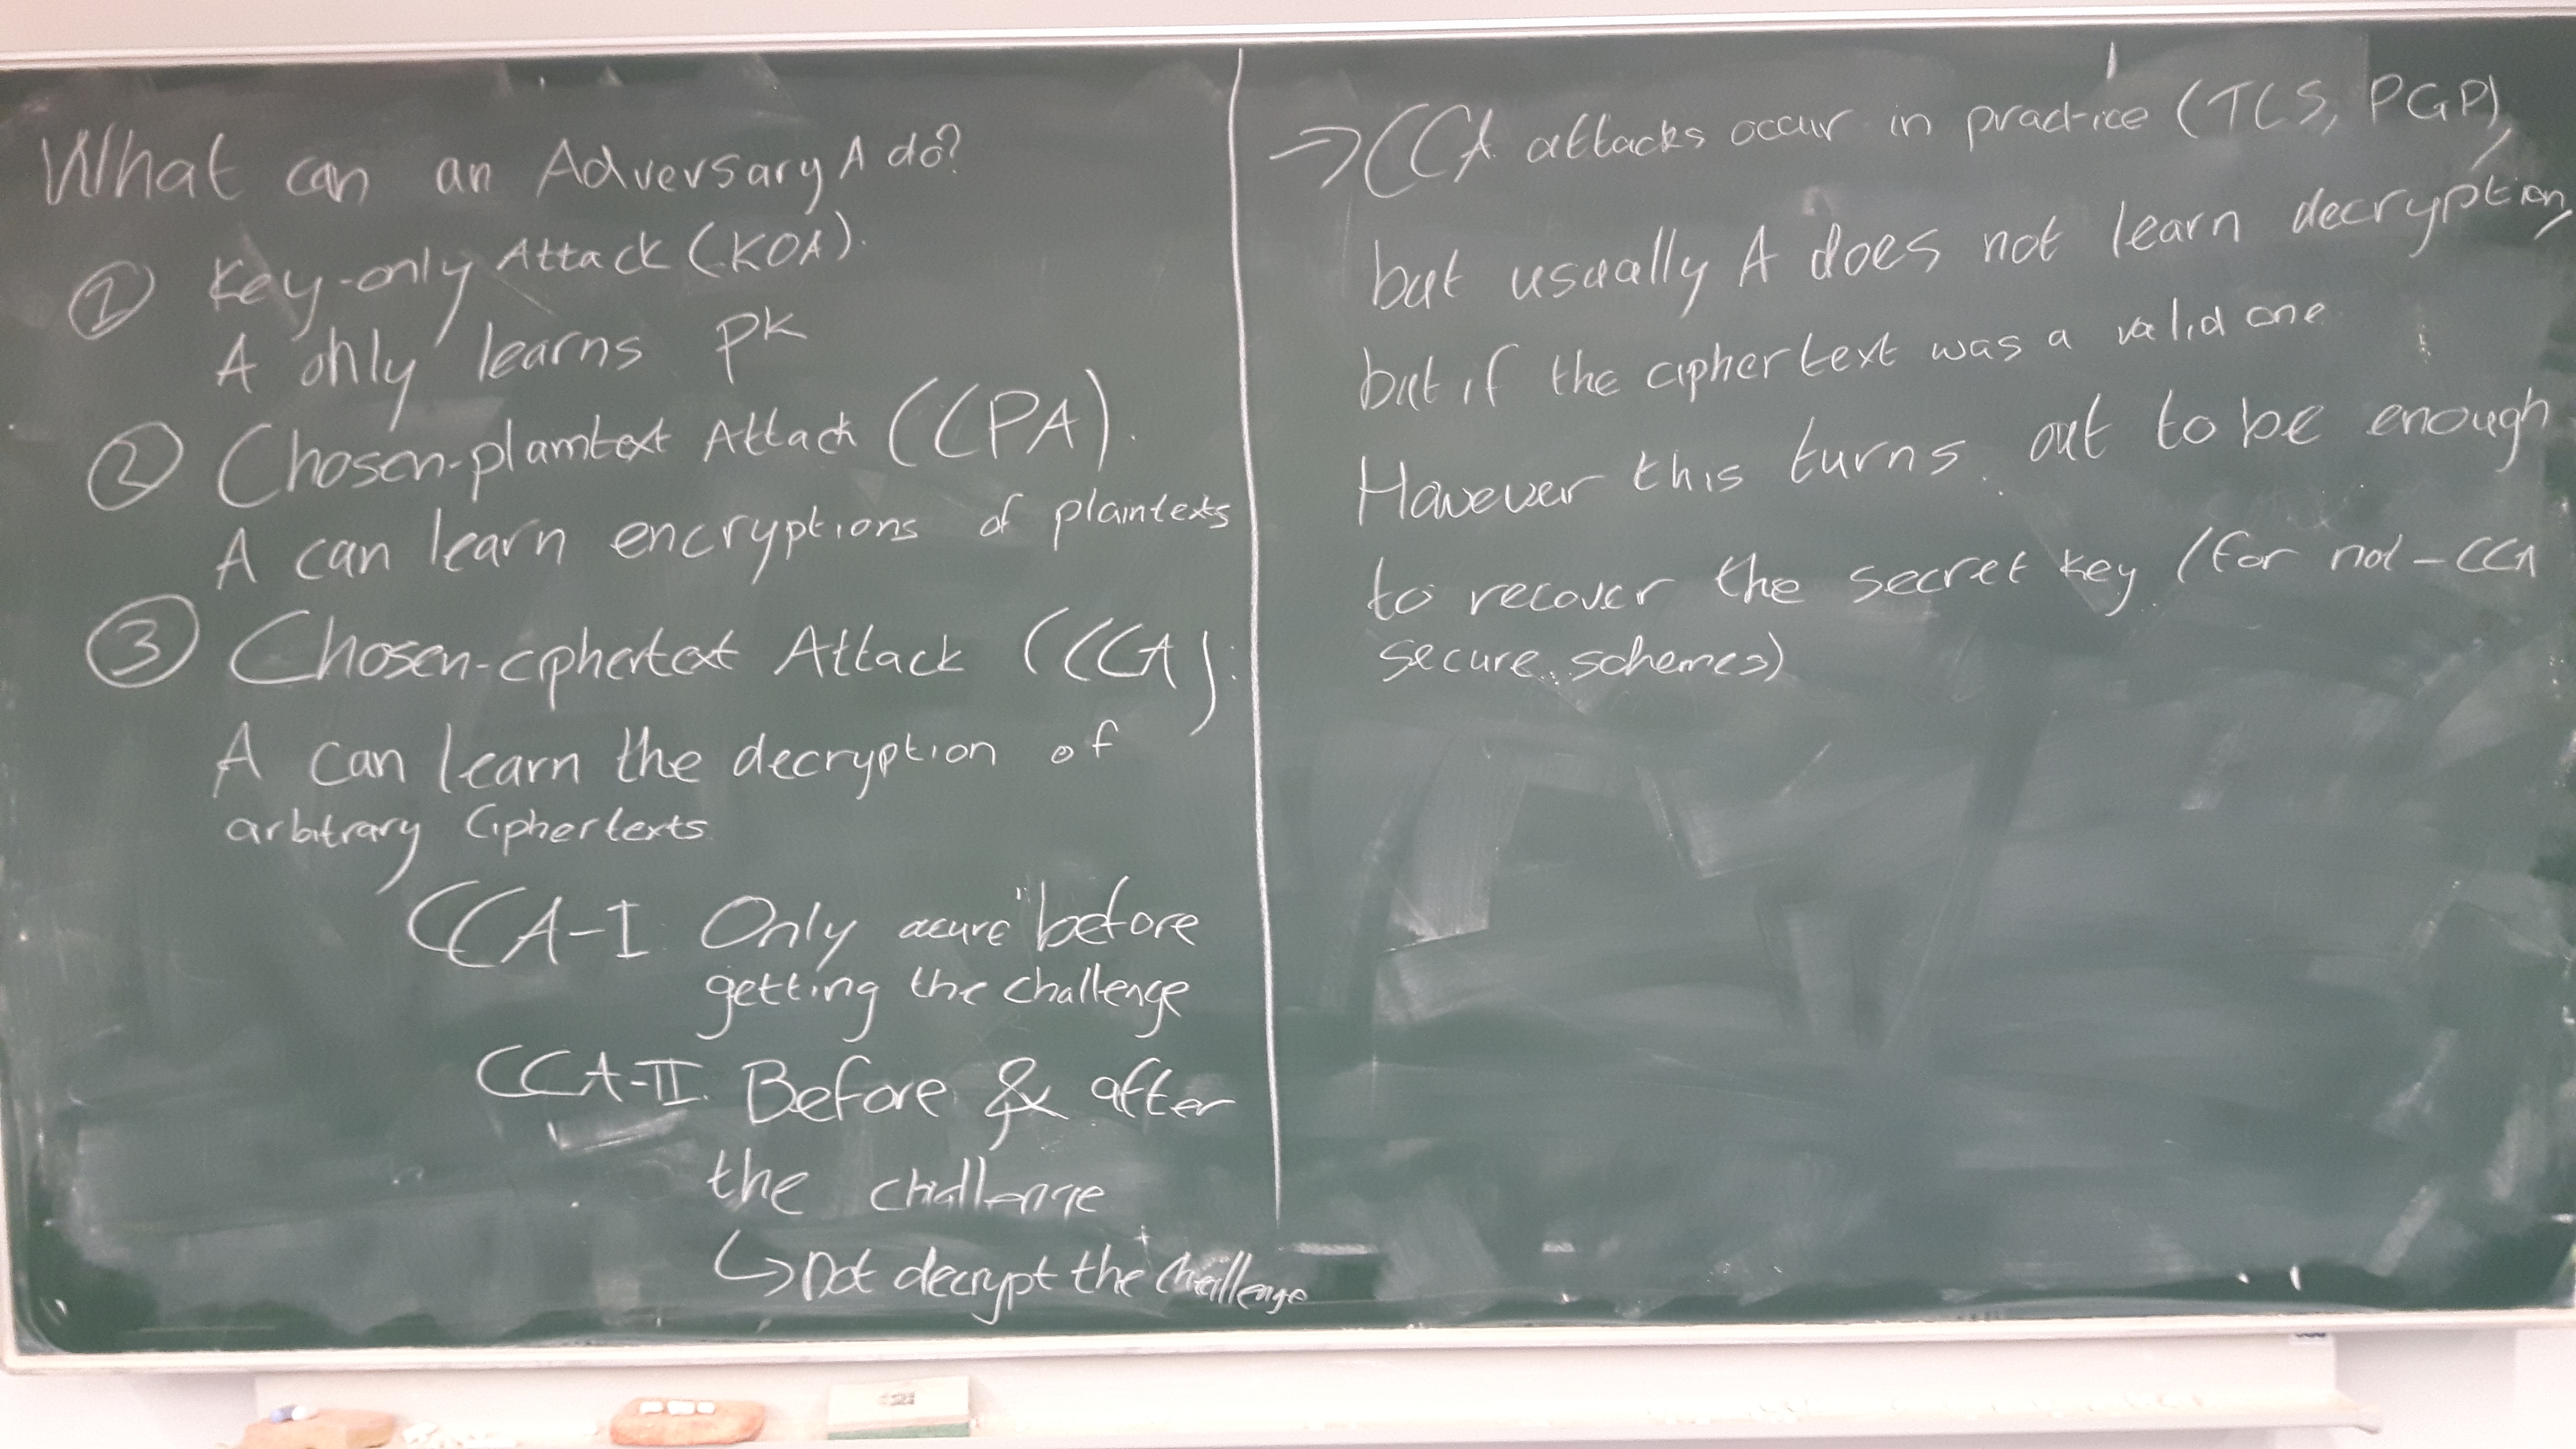 What can an Adversary A do?
① Key-only Attack (KOA).
A only learns pk
② Chosen-plaintext Attack (CPA).
A can learn encryptions of plaintexts
③ Chosen-ciphertext Attack (CCA):
A can learn the decryption of
arbitrary Ciphertexts
CCA-I: Only before
getting the challenge
CCA-II: Before & after
the challenge
↳ not decrypt the challenge
→ CCA attacks occur in practice (TLS, PGP),
but usually A does not learn decryption,
but if the ciphertext was a valid one
However this turns out to be enough
to recover the secret key (for not-CCA
secure schemes)